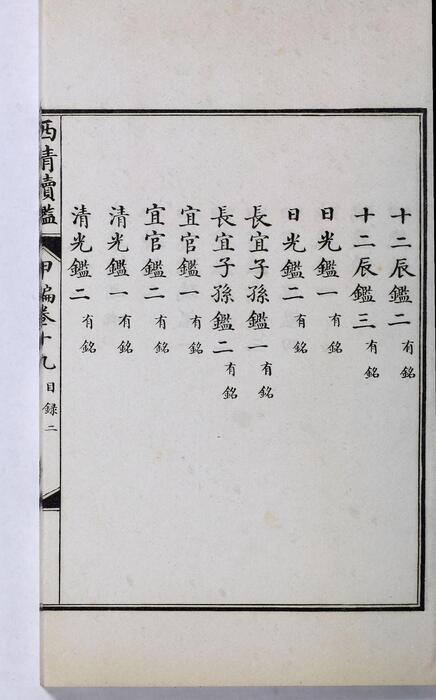 十二辰鑑二有銘
十二辰鑑三有銘
日光鑑一有銘
日光鑑二有銘
長宜子孫鑑一有銘
長宜子孫鑑二有銘
宜官鑑一有銘
宜官鑑二有銘
清光鑑一有銘
清光鑑二有銘
西清續鑑 甲編卷十九 目録 二